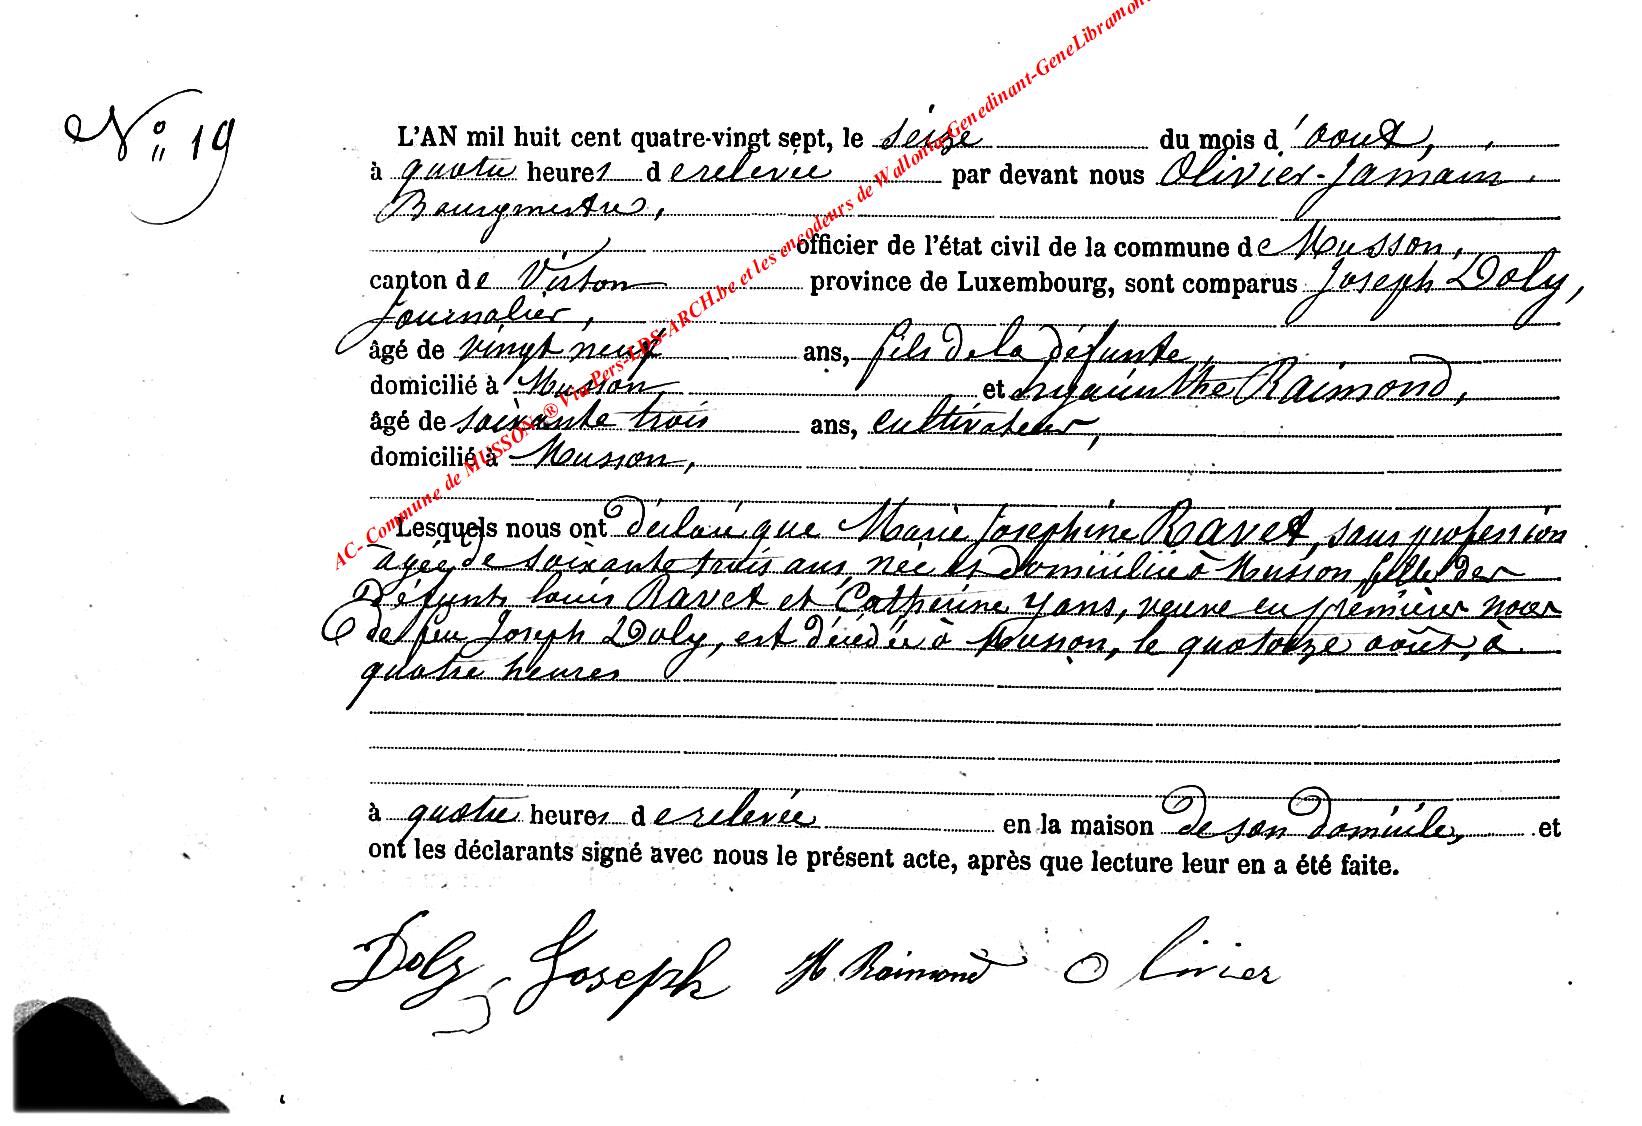 N° 19
L'AN mil huit cent quatre-vingt sept, le seize du mois d'août,
à quatre heures de relevée par devant nous Olivier-Jamain
Bourgmestre,
officier de l'état civil de la commune de Musson,
canton de Virton province de Luxembourg, sont comparus Joseph Doly,
Journalier,
âgé de vingt neuf ans, fils de la défunte,
domicilié à Musson, et hyacinthe Raimond,
âgé de soixante trois ans, cultivateur,
domicilié à Musson,
Lesquels nous ont déclaré que Marie Josephine Ravet, sans profession
âgée de soixante trois ans, née et domiciliée à Musson, fille des
défunts louis Ravet et Catherine Yans, veuve en premières noces
de feu Joseph Doly, est décédée à Musson, le quatorze août, à
quatre heures
à quatre heures de relevée en la maison de son domicile, et
ont les déclarants signé avec nous le présent acte, après que lecture leur en a été faite.
Doly Joseph H Raimond Olivier
AC- Commune de MUSSON ® Via Pers-LDS-ARCH.be et les encodeurs de Wallonia-Genedinant-GeneLibramon